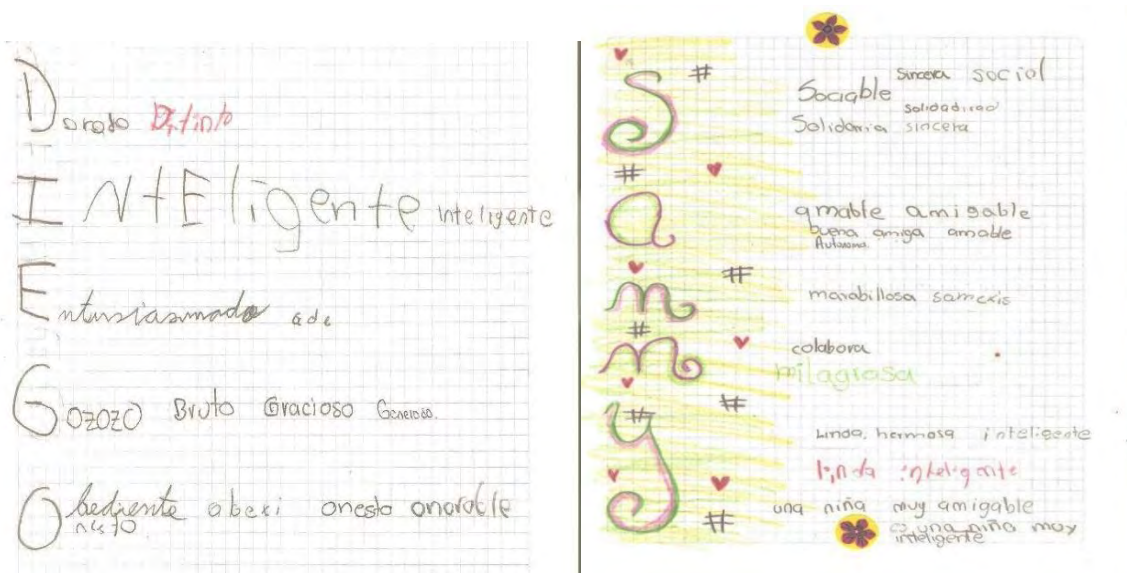 Dorado Distinto
INtEligente inteligente
Entusiasmado ade
GOZOZO Bruto Gracioso Generoso.
Obediente obeci onesto onorable
nesto
Sammy
Sincera social
Sociable
Solidaria sincera
amable amigable
buena amiga amable
Autonoma.
marabillosa
colabora
milagrosa
Linda, hermosa inteligente
linda inteligente
una niña muy amigable
es una niña muy
inteligente